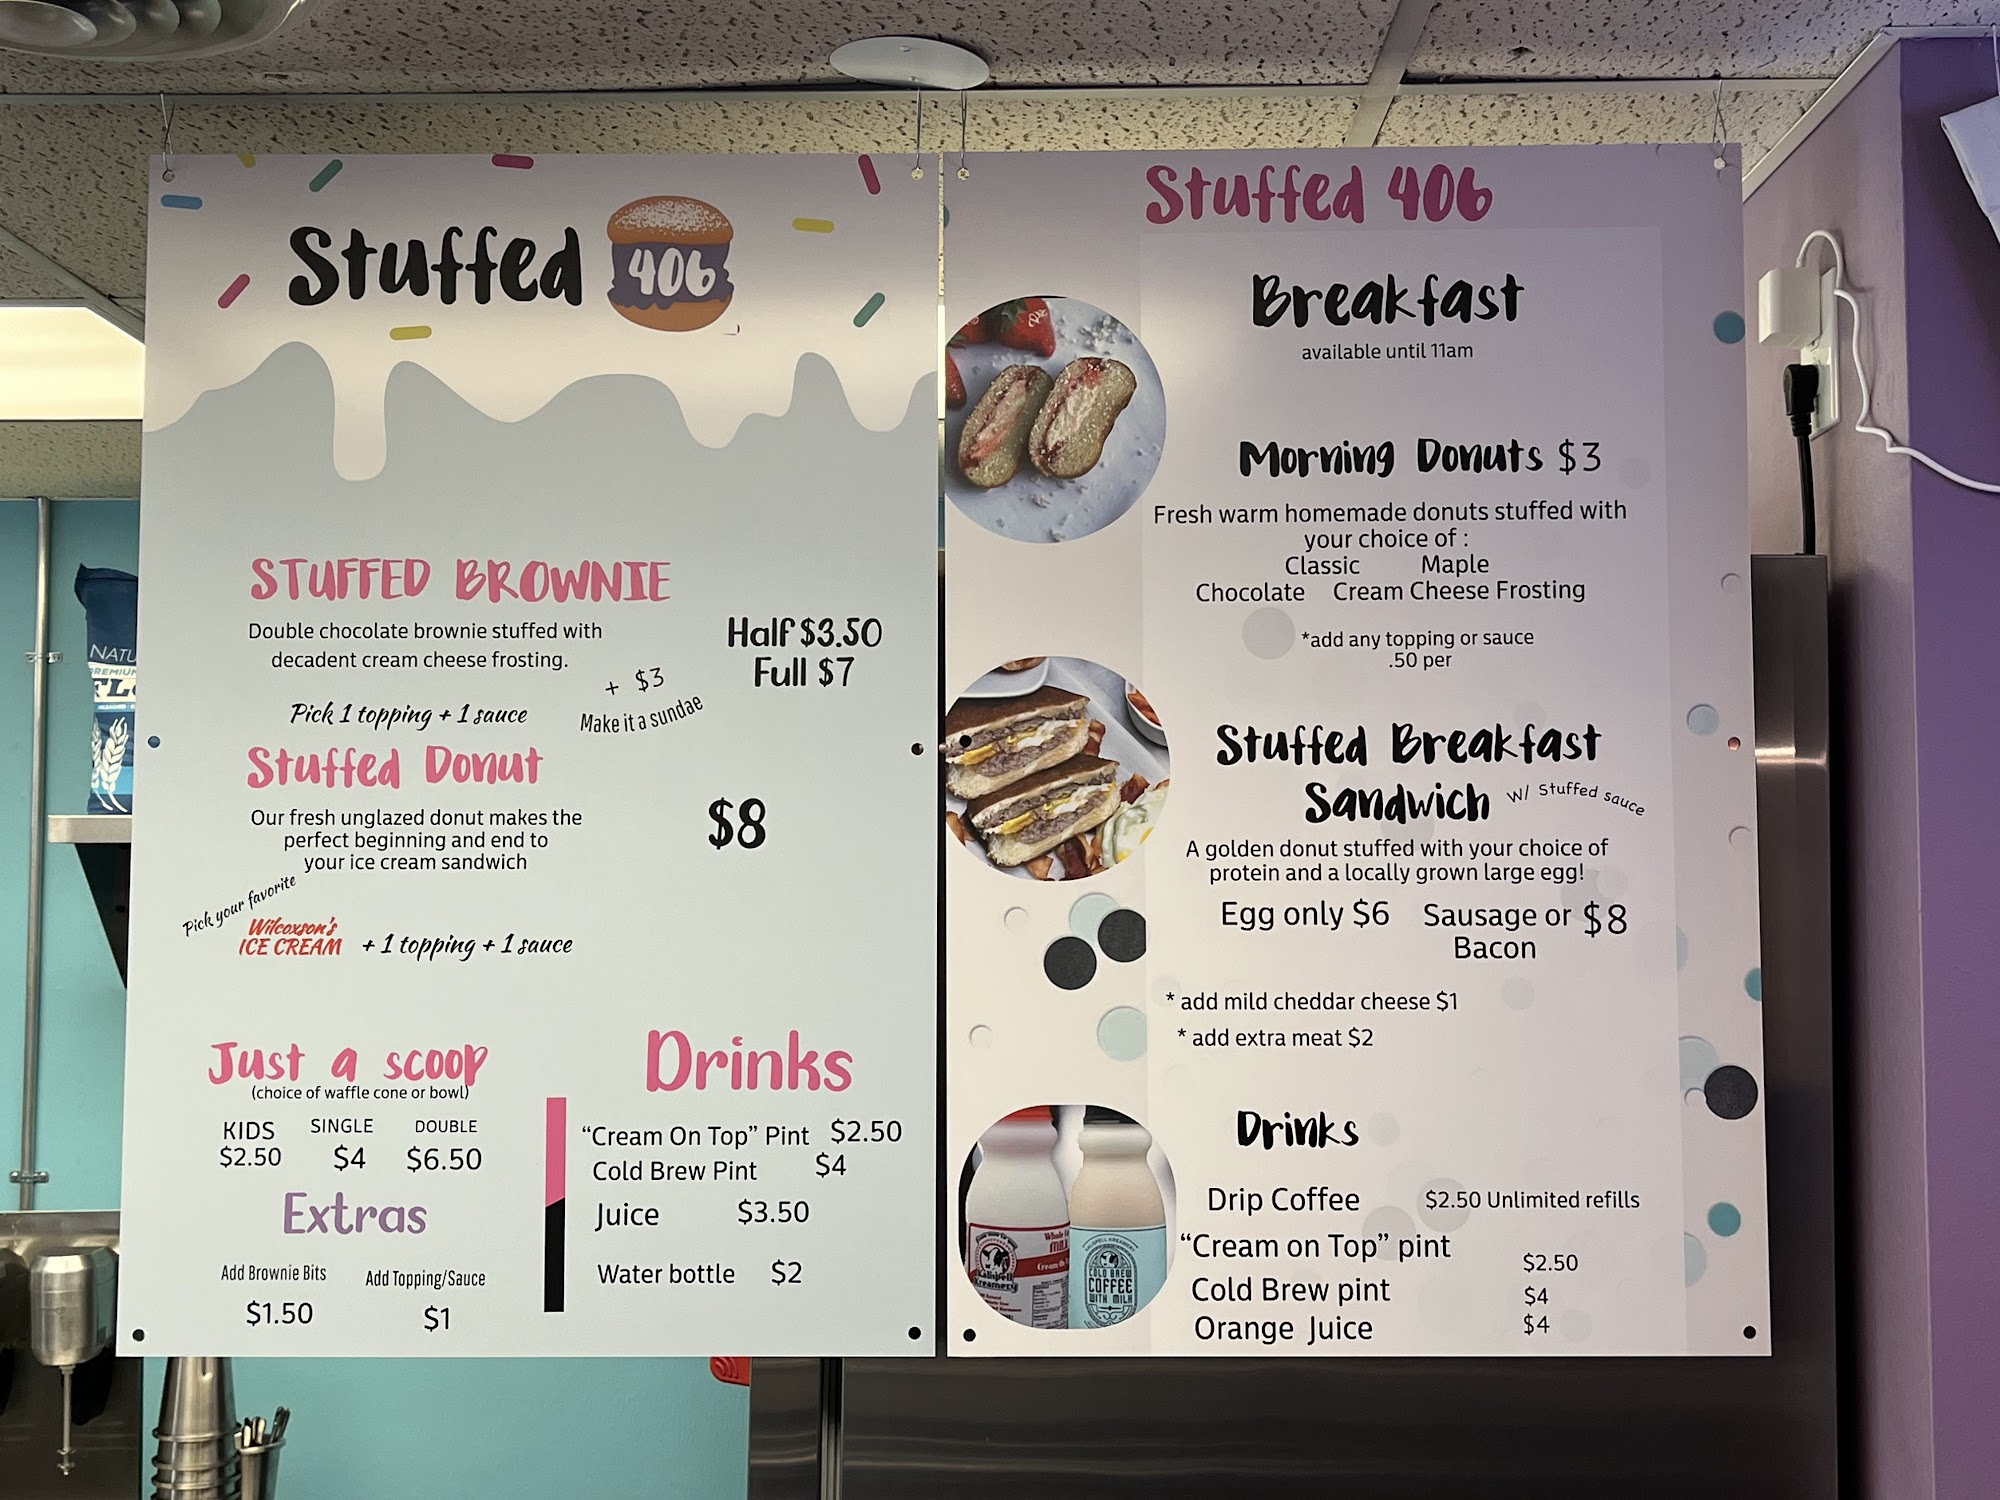 Stuffed 406
STUFFED BROWNIE
Double chocolate brownie stuffed with
decadent cream cheese frosting.
Half $3.50
Full $7
Pick 1 topping + 1 sauce
+ $3
Make it a sundae
Stuffed Donut
Our fresh unglazed donut makes the
perfect beginning and end to
your ice cream sandwich
$8
Pick your favorite
Wilcoxson's
ICE CREAM + 1 topping + 1 sauce
Just a scoop
(choice of waffle cone or bowl)
KIDS SINGLE DOUBLE
$2.50 $4 $6.50
Extras
Add Brownie Bits Add Topping/Sauce
$1.50 $1
Drinks
“Cream On Top” Pint $2.50
Cold Brew Pint $4
Juice $3.50
Water bottle $2
Stuffed 406
Breakfast
available until 11am
Morning Donuts $3
Fresh warm homemade donuts stuffed with
your choice of :
Classic Maple
Chocolate Cream Cheese Frosting
*add any topping or sauce
.50 per
Stuffed Breakfast
Sandwich W/ Stuffed sauce
A golden donut stuffed with your choice of
protein and a locally grown large egg!
Egg only $6 Sausage or $8
Bacon
* add mild cheddar cheese $1
* add extra meat $2
Drinks
Drip Coffee $2.50 Unlimited refills
“Cream on Top” pint $2.50
Cold Brew pint $4
Orange Juice $4
Kalispell
Creamery
Whole
MILK
KALISPELL KREAMERY
COLD BREW
COFFEE
WITH MILK
NATU
PREMIUM
FL